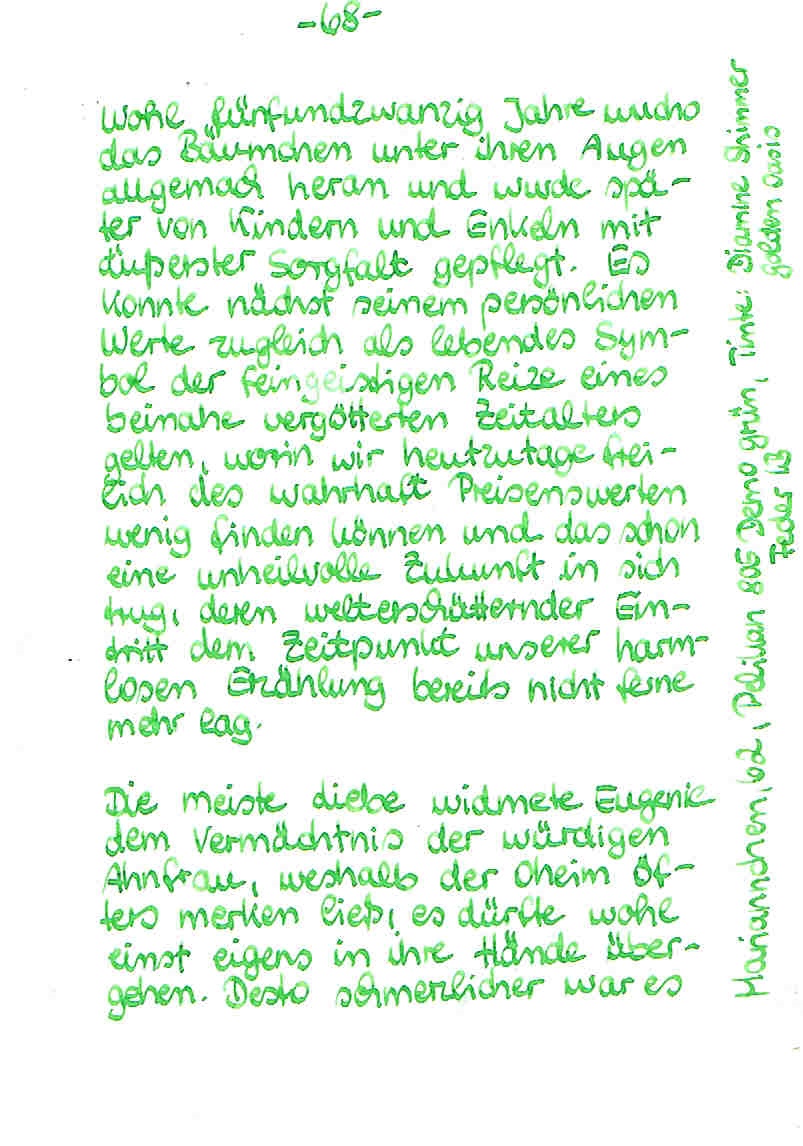 -68-
Wohl fünfundzwanzig Jahre wuchs
das Bäumchen unter ihren Augen
allgemach heran und wurde spä-
ter von Kindern und Enkeln mit
äußerster Sorgfalt gepflegt. Es
konnte nächst seinem persönlichen
Werte zugleich als lebendes Sym-
bol der feingeistigen Reize eines
beinahe vergötterten Zeitalters
gelten, worin wir heutzutage frei-
lich des wahrhaft Preisenswerten
wenig finden können und das schon
eine unheilvolle Zukunft in sich
trug, deren welterschütternder Ein-
tritt dem Zeitpunkt unserer harm-
losen Erzählung bereits nicht ferne
mehr lag.
Die meiste Liebe widmete Eugenie
dem Vermächtnis der würdigen
Ahnfrau, weshalb der Oheim öf-
ters merken ließ, es dürfte wohl
einst eigens in ihre Hände über-
gehen. Desto schmerzlicher war es
Mariannchen, 62, Pelikan 805 Demo grün, Tinte: Diamine Shimmer
Golden Oasis
Feder IB